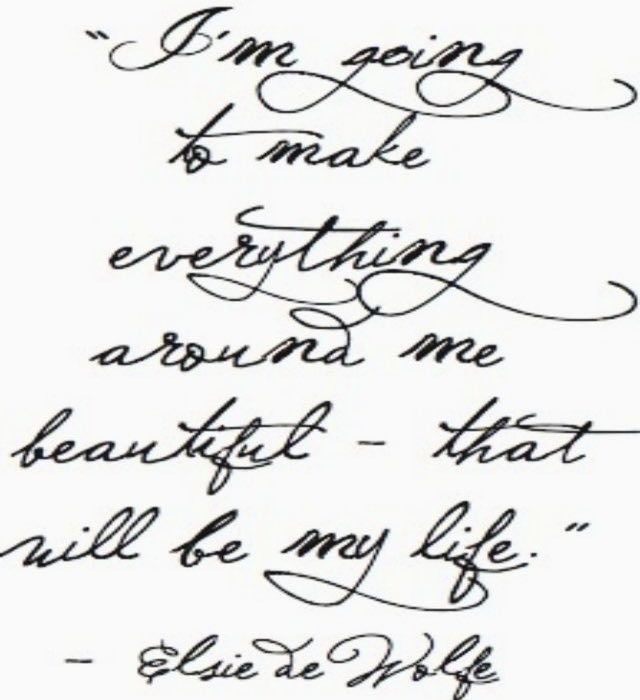 "I'm going
to make
everything
around me
beautiful - that
will be my life."
- Elsie de Wolfe